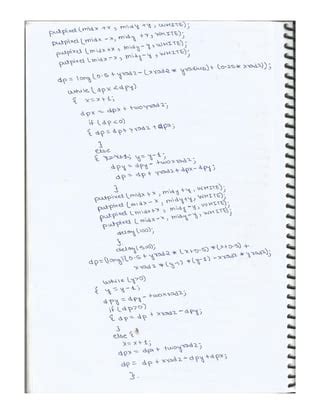 putpixel(midx+x, midy+y, WHITE);
putpixel(midx-x, midy+y, WHITE);
putpixel(midx+x, midy-y, WHITE);
putpixel(midx-x, midy-y, WHITE);
dp=long(0.5+yrad2-(xrad2*yradius)+(0.25*xrad2));
while(dpx<dpy)
{ x=x+1;
dpx=dpx+twoyrad2;
if(dp<0)
{ dp=dp+yrad2+dpx;
}
else
{ y=y-1;
dpy=dpy-twoxrad2;
dp=dp+yrad2+dpx-dpy;
}
putpixel(midx+x, midy+y, WHITE);
putpixel(midx-x, midy+y, WHITE);
putpixel(midx+x, midy-y, WHITE);
putpixel(midx-x, midy-y, WHITE);
delay(100);
}
delay(500);
dp=(long)(0.5+yrad2*(x+0.5)*(x+0.5)+
xrad2*(y-1)*(y-1)-xrad2*yrad2);
while(y>0)
{ y=y-1;
dpy=dpy-twoxrad2;
if(dp>0)
{ dp=dp+xrad2-dpy;
}
else {
x=x+1;
dpx=dpx+twoyrad2;
dp=dp+xrad2-dpy+dpx;
}